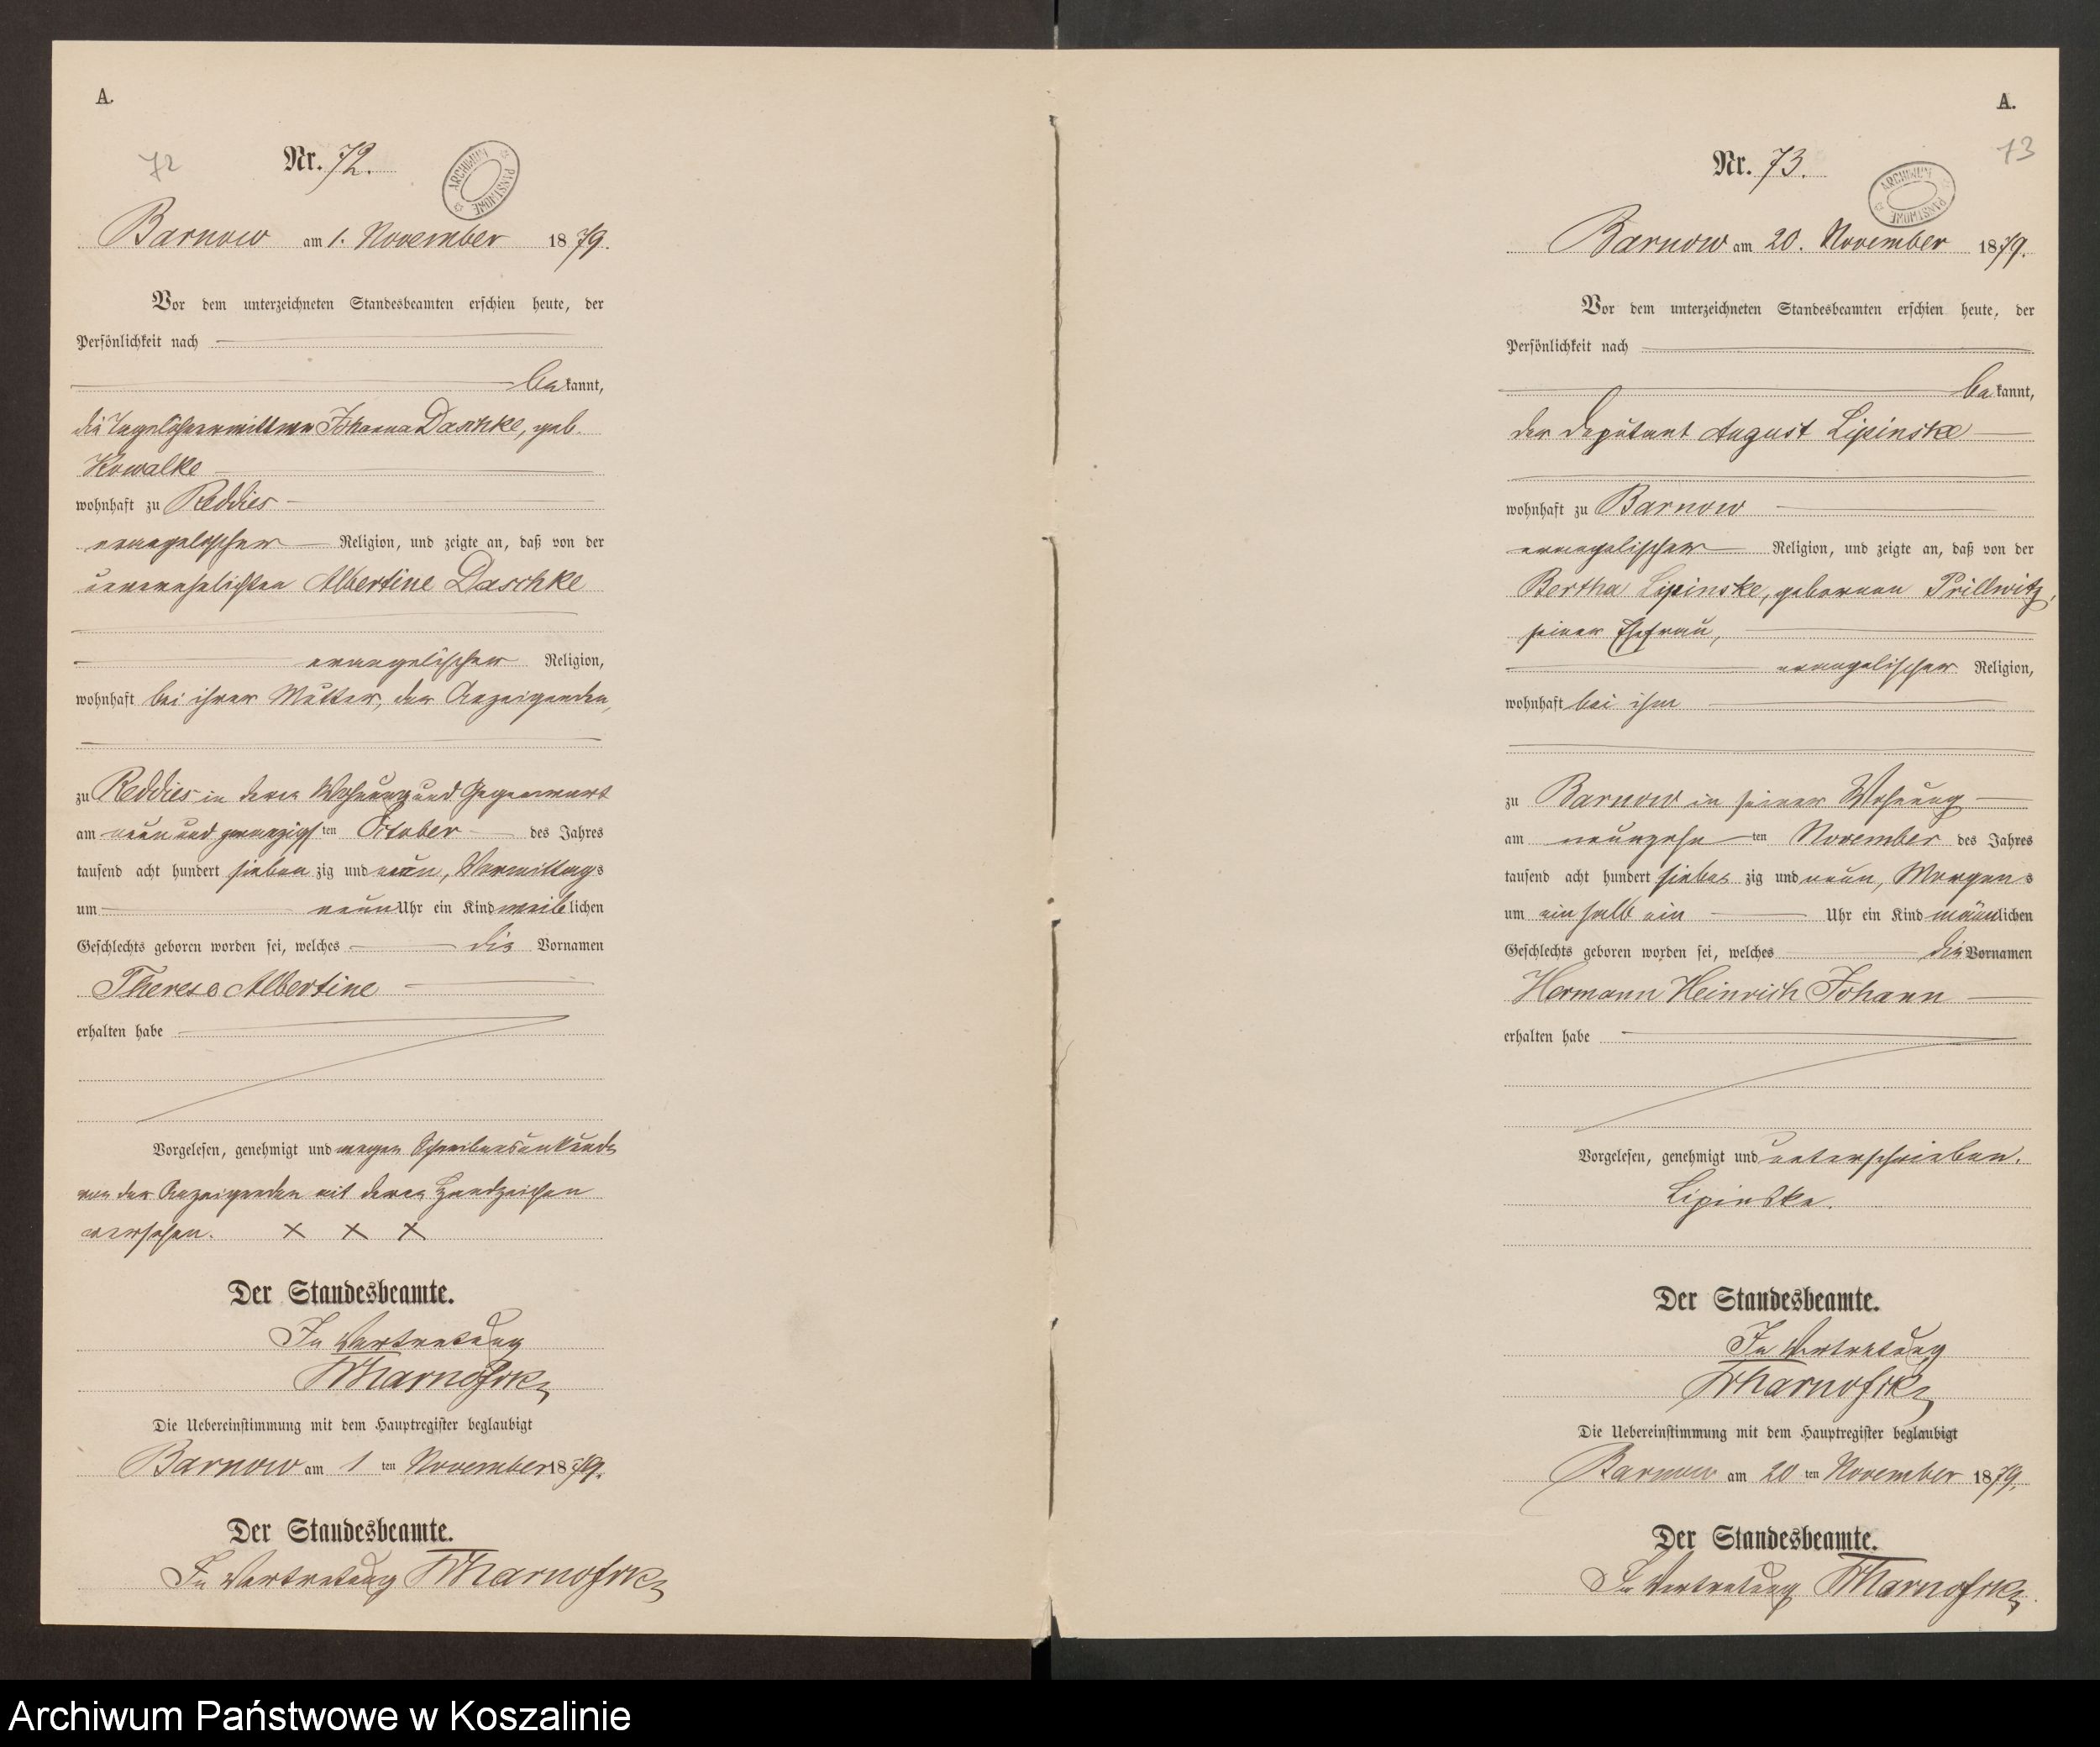 A.
72
Nr. 72.
ARCHIWUM PAŃSTWOWE
Barnow am 1. November 1879.
Vor dem unterzeichneten Standesbeamten erschien heute, der
Persönlichkeit nach
bekannt,
die Tagelöhnerwittwe Johanna Daschke, geb.
Kowalke
wohnhaft zu Reddies
evangelischer Religion, und zeigte an, daß von der
unverehelichten Albertine Daschke
evangelischer Religion,
wohnhaft bei ihrer Mutter, der Anzeigenden,
zu Reddies in deren Wohnung und Gegenwart
am neun und zwanzigsten October des Jahres
tausend acht hundert siebenzig und neun, Vormittags
um neun Uhr ein Kind weiblichen
Geschlechts geboren worden sei, welches die Vornamen
Therese Albertine
erhalten habe
Vorgelesen, genehmigt und wegen Schreibensunkunde
von der Anzeigenden mit deren Handzeichen
versehen. X X X
Der Standesbeamte.
In Vertretung
Die Uebereinstimmung mit dem Hauptregister beglaubigt
Barnow am 1 ten November 1879.
Der Standesbeamte.
In Vertretung
A.
73
Nr. 73.
ARCHIWUM PAŃSTWOWE
Barnow am 20. November 1879.
Vor dem unterzeichneten Standesbeamten erschien heute, der
Persönlichkeit nach
bekannt,
der Deputant August Lipinske
wohnhaft zu Barnow
evangelischer Religion, und zeigte an, daß von der
Bertha Lipinske, geborenen Prillwitz,
seiner Ehefrau,
evangelischer Religion,
wohnhaft bei ihm
zu Barnow in seiner Wohnung
am neunzehnten November des Jahres
tausend acht hundert siebenzig und neun, Morgens
um ein halb ein Uhr ein Kind männlichen
Geschlechts geboren worden sei, welches die Vornamen
Hermann Heinrich Johann
erhalten habe
Vorgelesen, genehmigt und unterschrieben.
Lipinske.
Der Standesbeamte.
In Vertretung
Die Uebereinstimmung mit dem Hauptregister beglaubigt
Barnow am 20 ten November 1879.
Der Standesbeamte.
In Vertretung
Archiwum Państwowe w Koszalinie